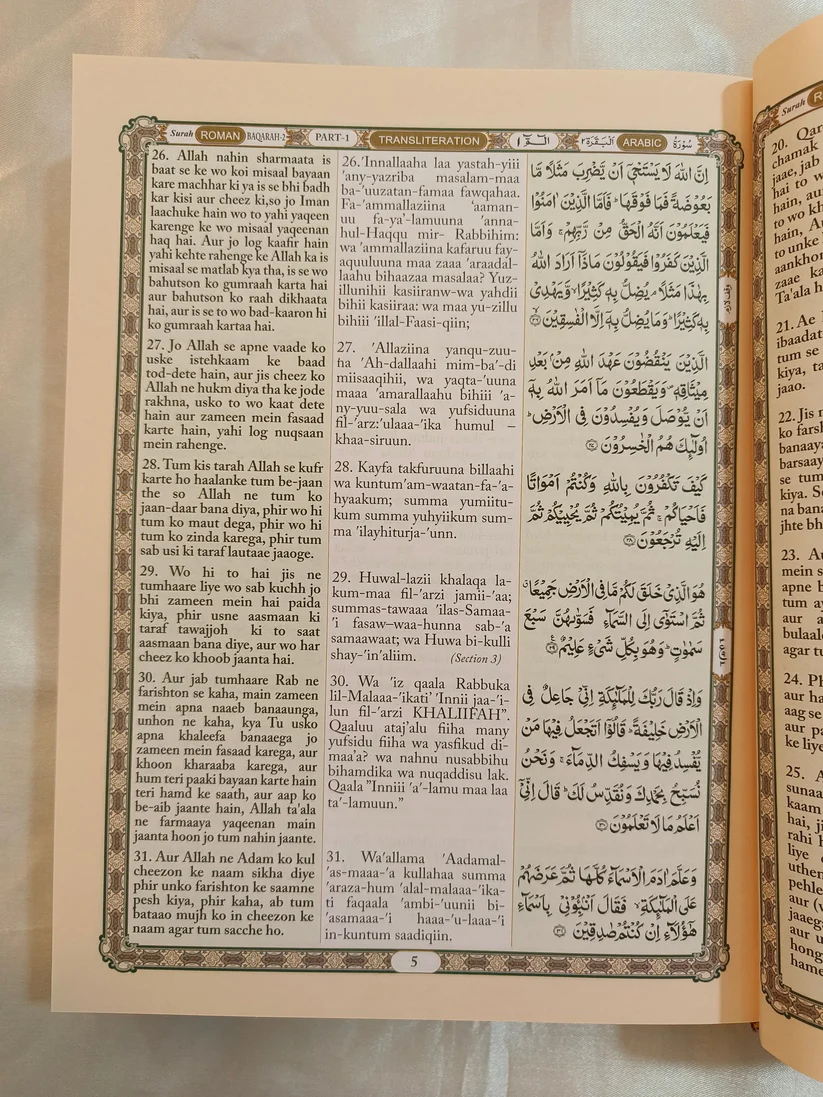 Surah ROMAN BAQARAH-2 PART-1 TRANSLITERATION الٓمّٓ ١ اَلْبَقَرَة ٢ ARABIC سُوْرَةُ
26. Allah nahin sharmaata is
baat se ke wo koi misaal bayaan
kare machhar ki ya is se bhi badh
kar kisi aur cheez ki,so jo Iman
laachuke hain wo to yahi yaqeen
karenge ke wo misaal yaqeenan
haq hai. Aur jo log kaafir hain
yahi kehte rahenge ke Allah ka is
misaal se matlab kya tha, is se wo
bahutson ko gumraah karta hai
aur bahutson ko raah dikhaata
hai, aur is se to wo bad-kaaron hi
ko gumraah kartaa hai.
27. Jo Allah se apne vaade ko
uske istehkaam ke baad
tod-dete hain, aur jis cheez ko
Allah ne hukm diya tha ke jode
rakhna, usko to wo kaat dete
hain aur zameen mein fasaad
karte hain, yahi log nuqsaan
mein rahenge.
28. Tum kis tarah Allah se kufr
karte ho haalanke tum be-jaan
the so Allah ne tum ko
jaan-daar bana diya, phir wo hi
tum ko maut dega, phir wo hi
tum ko zinda karega, phir tum
sab usi ki taraf lautaae jaaoge.
29. Wo hi to hai jis ne
tumhaare liye wo sab kuchh jo
bhi zameen mein hai paida
kiya, phir usne aasmaan ki
taraf tawajjoh ki to saat
aasmaan bana diye, aur wo har
cheez ko khoob jaanta hai.
30. Aur jab tumhaare Rab ne
farishton se kaha, main zameen
mein apna naaeb banaaunga,
unhon ne kaha, kya Tu usko
apna khaleefa banaaega jo
zameen mein fasaad karega, aur
khoon kharaaba karega, aur
hum teri paaki bayaan karte hain
teri hamd ke saath, aur aap ko
be-aib jaante hain, Allah ta'ala
ne farmaaya yaqeenan main
jaanta hoon jo tum nahin jaante.
31. Aur Allah ne Adam ko kul
cheezon ke naam sikha diye
phir unko farishton ke saamne
pesh kiya, phir kaha, ab tum
bataao mujh ko in cheezon ke
naam agar tum sacche ho.
26.'Innallaaha laa yastah-yiii
'any-yazriba masalam-maa
ba-'uuzatan-famaa fawqahaa.
Fa-'ammallaziina 'aaman-
uu fa-ya'-lamuuna 'anna-
hul-Haqqu mir- Rabbihim:
wa 'ammallaziina kafaruu fay-
aquuluuna maa zaaa 'araadal-
laahu bihaazaa masalaa? Yuz-
illunihii kasiiranw-wa yahdii
bihii kasiiraa: wa maa yu-zillu
bihiii 'illal-Faasi-qiin;
27. 'Allaziina yanqu-zuu-
ha 'Ah-dallaahi mim-ba'-di
miisaaqihii, wa yaqta-'uuna
maaa 'amarallaahu bihiii 'a-
ny-yuu-sala wa yufsiduuna
fil-'arz:'ulaaa-'ika humul –
khaa-siruun.
28. Kayfa takfuruuna billaahi
wa kuntum'am-waatan-fa-'a-
hyaakum; summa yumiitu-
kum summa yuhyiikum sum-
ma 'ilayhiturja-'unn.
29. Huwal-lazii khalaqa la-
kum-maa fil-'arzi jamii-'aa;
summas-tawaaa 'ilas-Samaa-
'i fasaw–waa-hunna sab-'a
samaawaat; wa Huwa bi-kulli
shay-'in'aliim. (Section 3)
30. Wa 'iz qaala Rabbuka
lil-Malaaa-'ikati' 'Innii jaa-'i-
lun fil-'arzi KHALIIFAH”.
Qaaluu ataj'alu fiiha many
yufsidu fiiha wa yasfikud di-
maa'a? wa nahnu nusabbihu
bihamdika wa nuqaddisu lak.
Qaala ”Inniii 'a'-lamu maa laa
ta'-lamuun.”
31. Wa'allama 'Aadamal-
'as-maaa-'a kullahaa summa
'araza-hum 'alal-malaaa-'ika-
ti faqaala 'ambi-'uunii bi-
'asamaaa-'i haaa-'u-laaa-'i
in-kuntum saadiqiin.
اِنَّ اللّٰهَ لَا يَسْتَحْيٖٓ اَنْ يَّضْرِبَ مَثَلًا مَّا
بَعُوْضَةً فَمَا فَوْقَهَا ؕ فَاَمَّا الَّذِيْنَ اٰمَنُوْا
فَيَعْلَمُوْنَ اَنَّهُ الْحَقُّ مِنْ رَّبِّهِمْ ۚ وَاَمَّا
الَّذِيْنَ كَفَرُوْا فَيَقُوْلُوْنَ مَاذَاۤ اَرَادَ اللّٰهُ
بِهٰذَا مَثَلًا ۘ يُضِلُّ بِهٖ كَثِيْرًا ۙ وَّيَهْدِىْ
بِهٖ كَثِيْرًا ؕ وَمَا يُضِلُّ بِهٖۤ اِلَّا الْفٰسِقِيْنَ ۙ‏﴿۲۶﴾
الَّذِيْنَ يَنْقُضُوْنَ عَهْدَ اللّٰهِ مِنْۢ بَعْدِ
مِيْثَاقِهٖ ۪ وَيَقْطَعُوْنَ مَاۤ اَمَرَ اللّٰهُ بِهٖۤ
اَنْ يُّوْصَلَ وَيُفْسِدُوْنَ فِى الْاَرْضِ ؕ
اُولٰٓئِكَ هُمُ الْخٰسِرُوْنَ ﴿۲۷﴾
كَيْفَ تَكْفُرُوْنَ بِاللّٰهِ وَكُنْتُمْ اَمْوَاتًا
فَاَحْيَاكُمْ ۚ ثُمَّ يُمِيْتُكُمْ ثُمَّ يُحْيِيْكُمْ ثُمَّ
اِلَيْهِ تُرْجَعُوْنَ ﴿۲۸﴾
هُوَ الَّذِىْ خَلَقَ لَكُمْ مَّا فِى الْاَرْضِ جَمِيْعًا ۗ
ثُمَّ اسْتَوٰۤى اِلَى السَّمَآءِ فَسَوّٰٮهُنَّ سَبْعَ
سَمٰوٰتٍ ؕ وَهُوَ بِكُلِّ شَىْءٍ عَلِيْمٌ ﴿۲۹﴾
وَاِذْ قَالَ رَبُّكَ لِلْمَلٰٓئِكَةِ اِنِّىْ جَاعِلٌ فِى
الْاَرْضِ خَلِيْفَةً ؕ قَالُوْۤا اَتَجْعَلُ فِيْهَا مَنْ
يُّفْسِدُ فِيْهَا وَيَسْفِكُ الدِّمَآءَ ۚ وَنَحْنُ
نُسَبِّحُ بِحَمْدِكَ وَنُقَدِّسُ لَكَ ؕ قَالَ اِنِّىْۤ
اَعْلَمُ مَا لَا تَعْلَمُوْنَ ﴿۳۰﴾
وَعَلَّمَ اٰدَمَ الْاَسْمَآءَ كُلَّهَا ثُمَّ عَرَضَهُمْ
عَلَى الْمَلٰٓئِكَةِ ۙ فَقَالَ اَنْۢبِـُٔوْنِىْ بِاَسْمَآءِ
هٰٓؤُلَآءِ اِنْ كُنْتُمْ صٰدِقِيْنَ ﴿۳۱﴾
5
Surah
20. Qar
chamak
jaae, jab
hai to w
hain, au
to wo kh
hain, A
to unke
aankhon
zaae ka
Ta'ala h
21. Ae
ibaadat
tum se
kiya, ta
jaao.
22. Jis n
ko farsh
banaaya
barsaay
se tum
kiya. S
na bana
jhte bh
23. Au
mein s
apne b
tum ay
aur a
bulaale
agar tu
24. Ph
aur ha
aag se
aur pa
ke liye
25. A
sunaa
kaam
hai, ji
rahi h
liye
uthen
pehle
aur (v
jaaeg
aur u
hong
hame